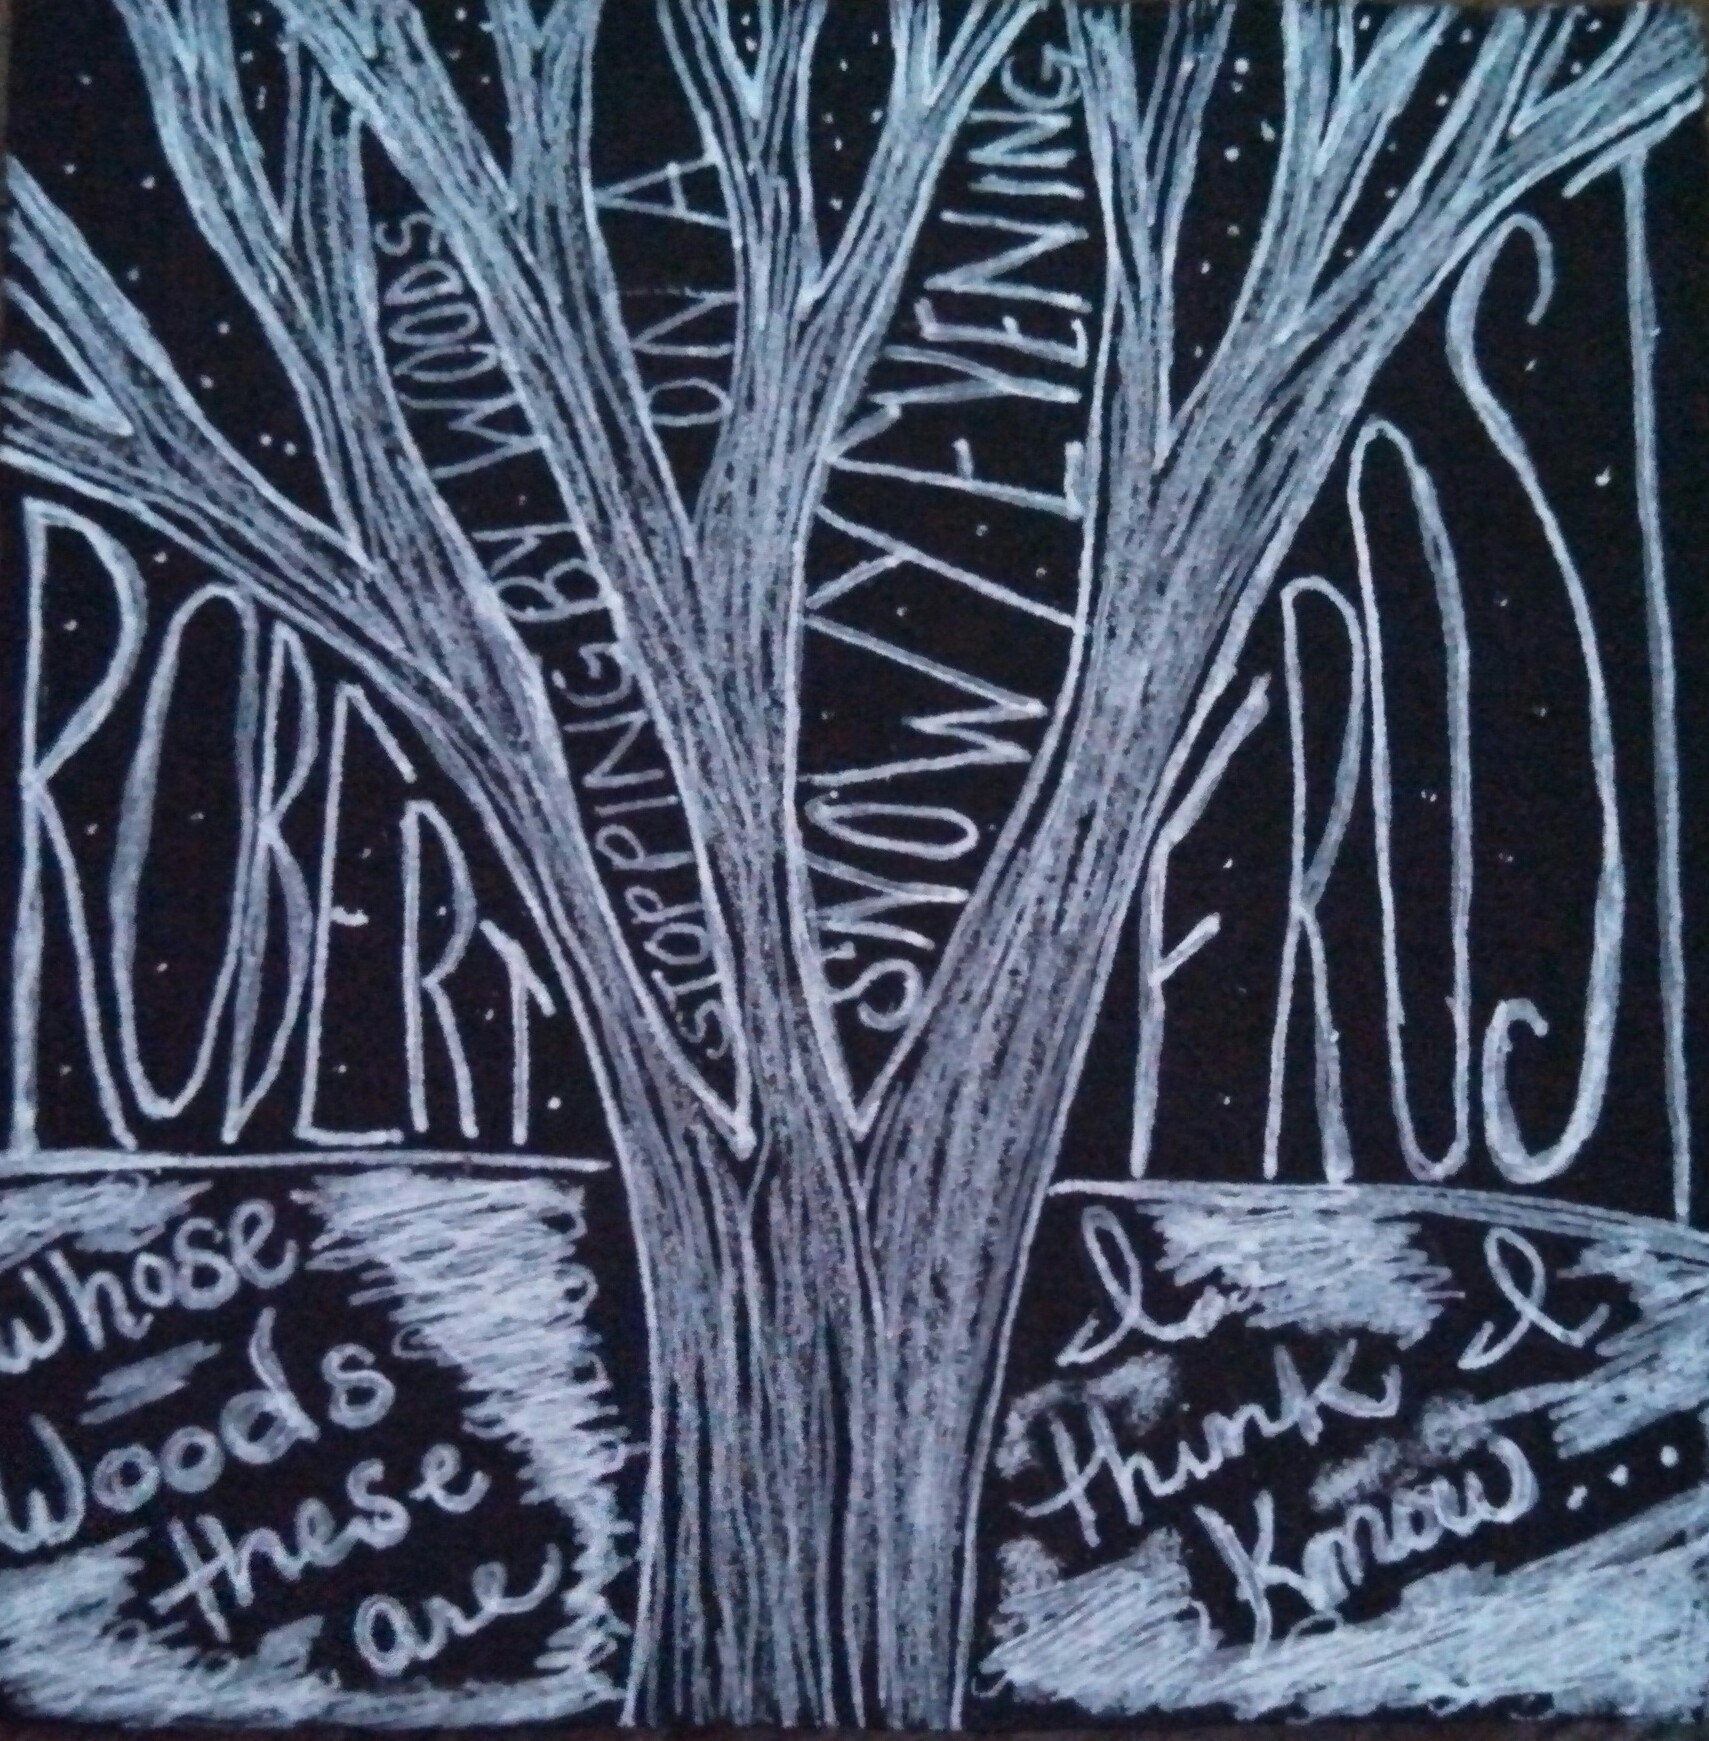 STOPPING BY WOODS
ON A
SNOWY EVENING
ROBERT FROST
Whose
Woods
these
are
I
think I
Know...